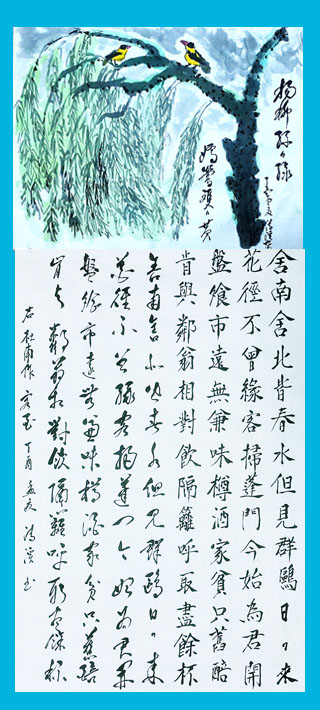 舍南舍北皆春水但見群鷗日々來
花徑不曾緣客掃蓬門今始為君開
盤飧市遠無兼味樽酒家貧只舊醅
肯與鄰翁相對飲隔籬呼取盡餘杯
舍南舍北皆春水但見群鷗日々來
花徑不曾緣客掃蓬門今始為君開
盤飧市遠無兼味樽酒家貧只舊醅
肯與鄰翁相對飲隔籬呼取盡餘杯
右杜甫作客至 丁酉孟夏 书